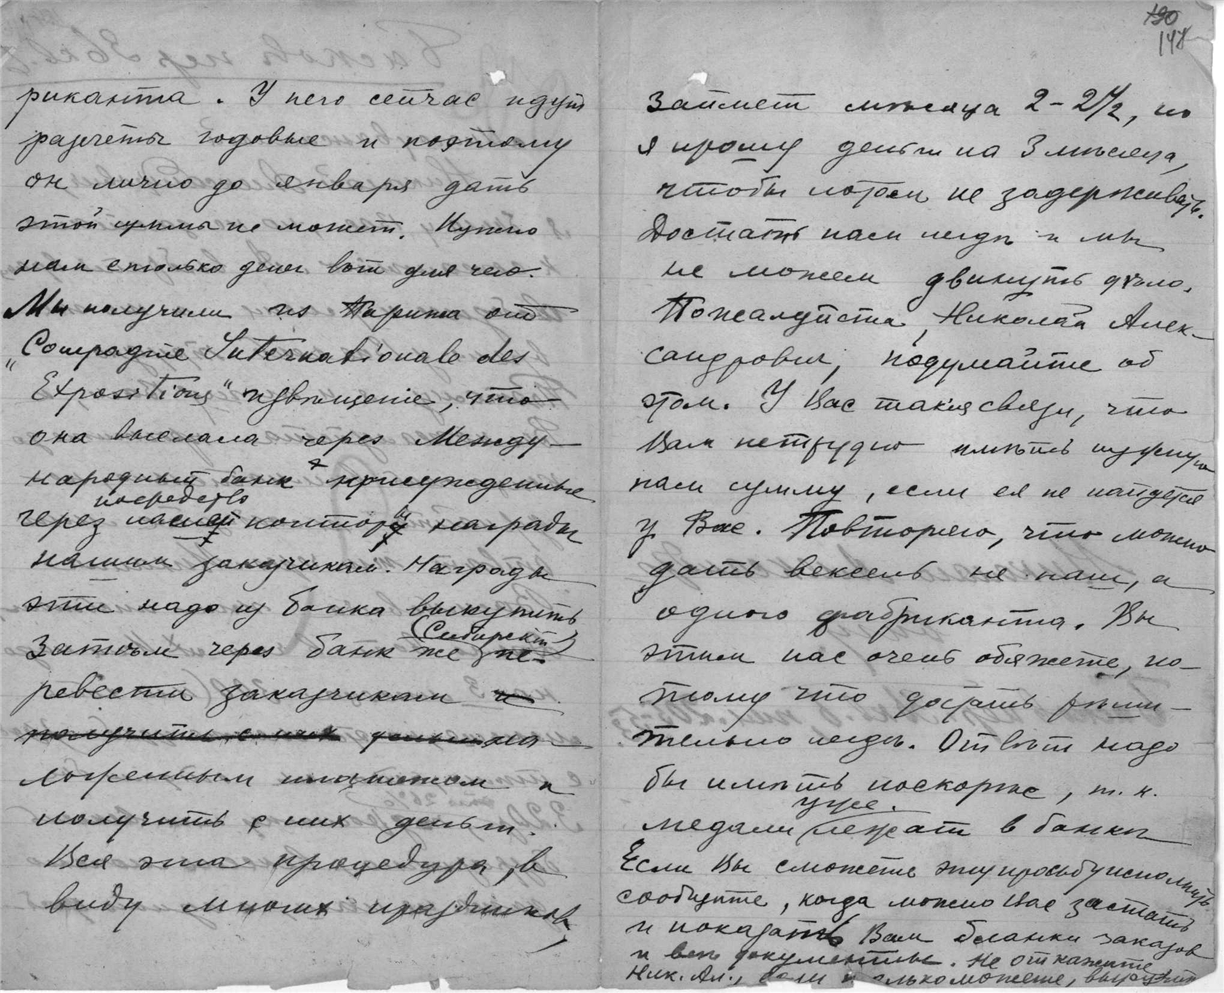 риканта. У него сейчас идут
разчеты годовые и поэтому
он лично до января дать
этой суммы не может. Нужно
нам столько денег вот для чего.
Мы получили из Парижа от
„Compagnie Internationale des
Expositions" извѣщение, что
она выслала через Между-
народный банк присужденные
через посредство нашей конторы награды
нашим заказчикам. Награды
эти надо из банка выкупить
Затѣм через банк же (Сибирский) пе-
ревести заказчикам и
получить с них деньги на-
ложенным платежом и
получить с них деньги.
Вся эта процедура, в
виду многих праздников,
190
148
займет мѣсяца 2-2 1/2, но
я прошу деньги на 3 мѣсяца,
чтобы потом не задерживать.
Достать нам негдѣ и мы
не можем двинуть дѣло.
Пожалуйста, Николай Алек-
сандрович, подумайте об
этом. У Вас такия связи, что
Вам нетрудно имѣть нужную
нам сумму, если ея не найдется
у Вас. Повторяю, что можно
дать вексель не наш, а
одного фабриканта. Вы
этим нас очень обяжете, по-
тому что достать рѣши-
тельно негдѣ. Отвѣт надо
бы имѣть поскорѣе, т. к.
медали уже лежат в банкѣ
Если Вы сможете эту просьбу исполнить
сообщите, когда можно Вас застать
и показать Вам бланки заказов
и всѣ документы. Не откажите
Ник. Ал., если только можете,